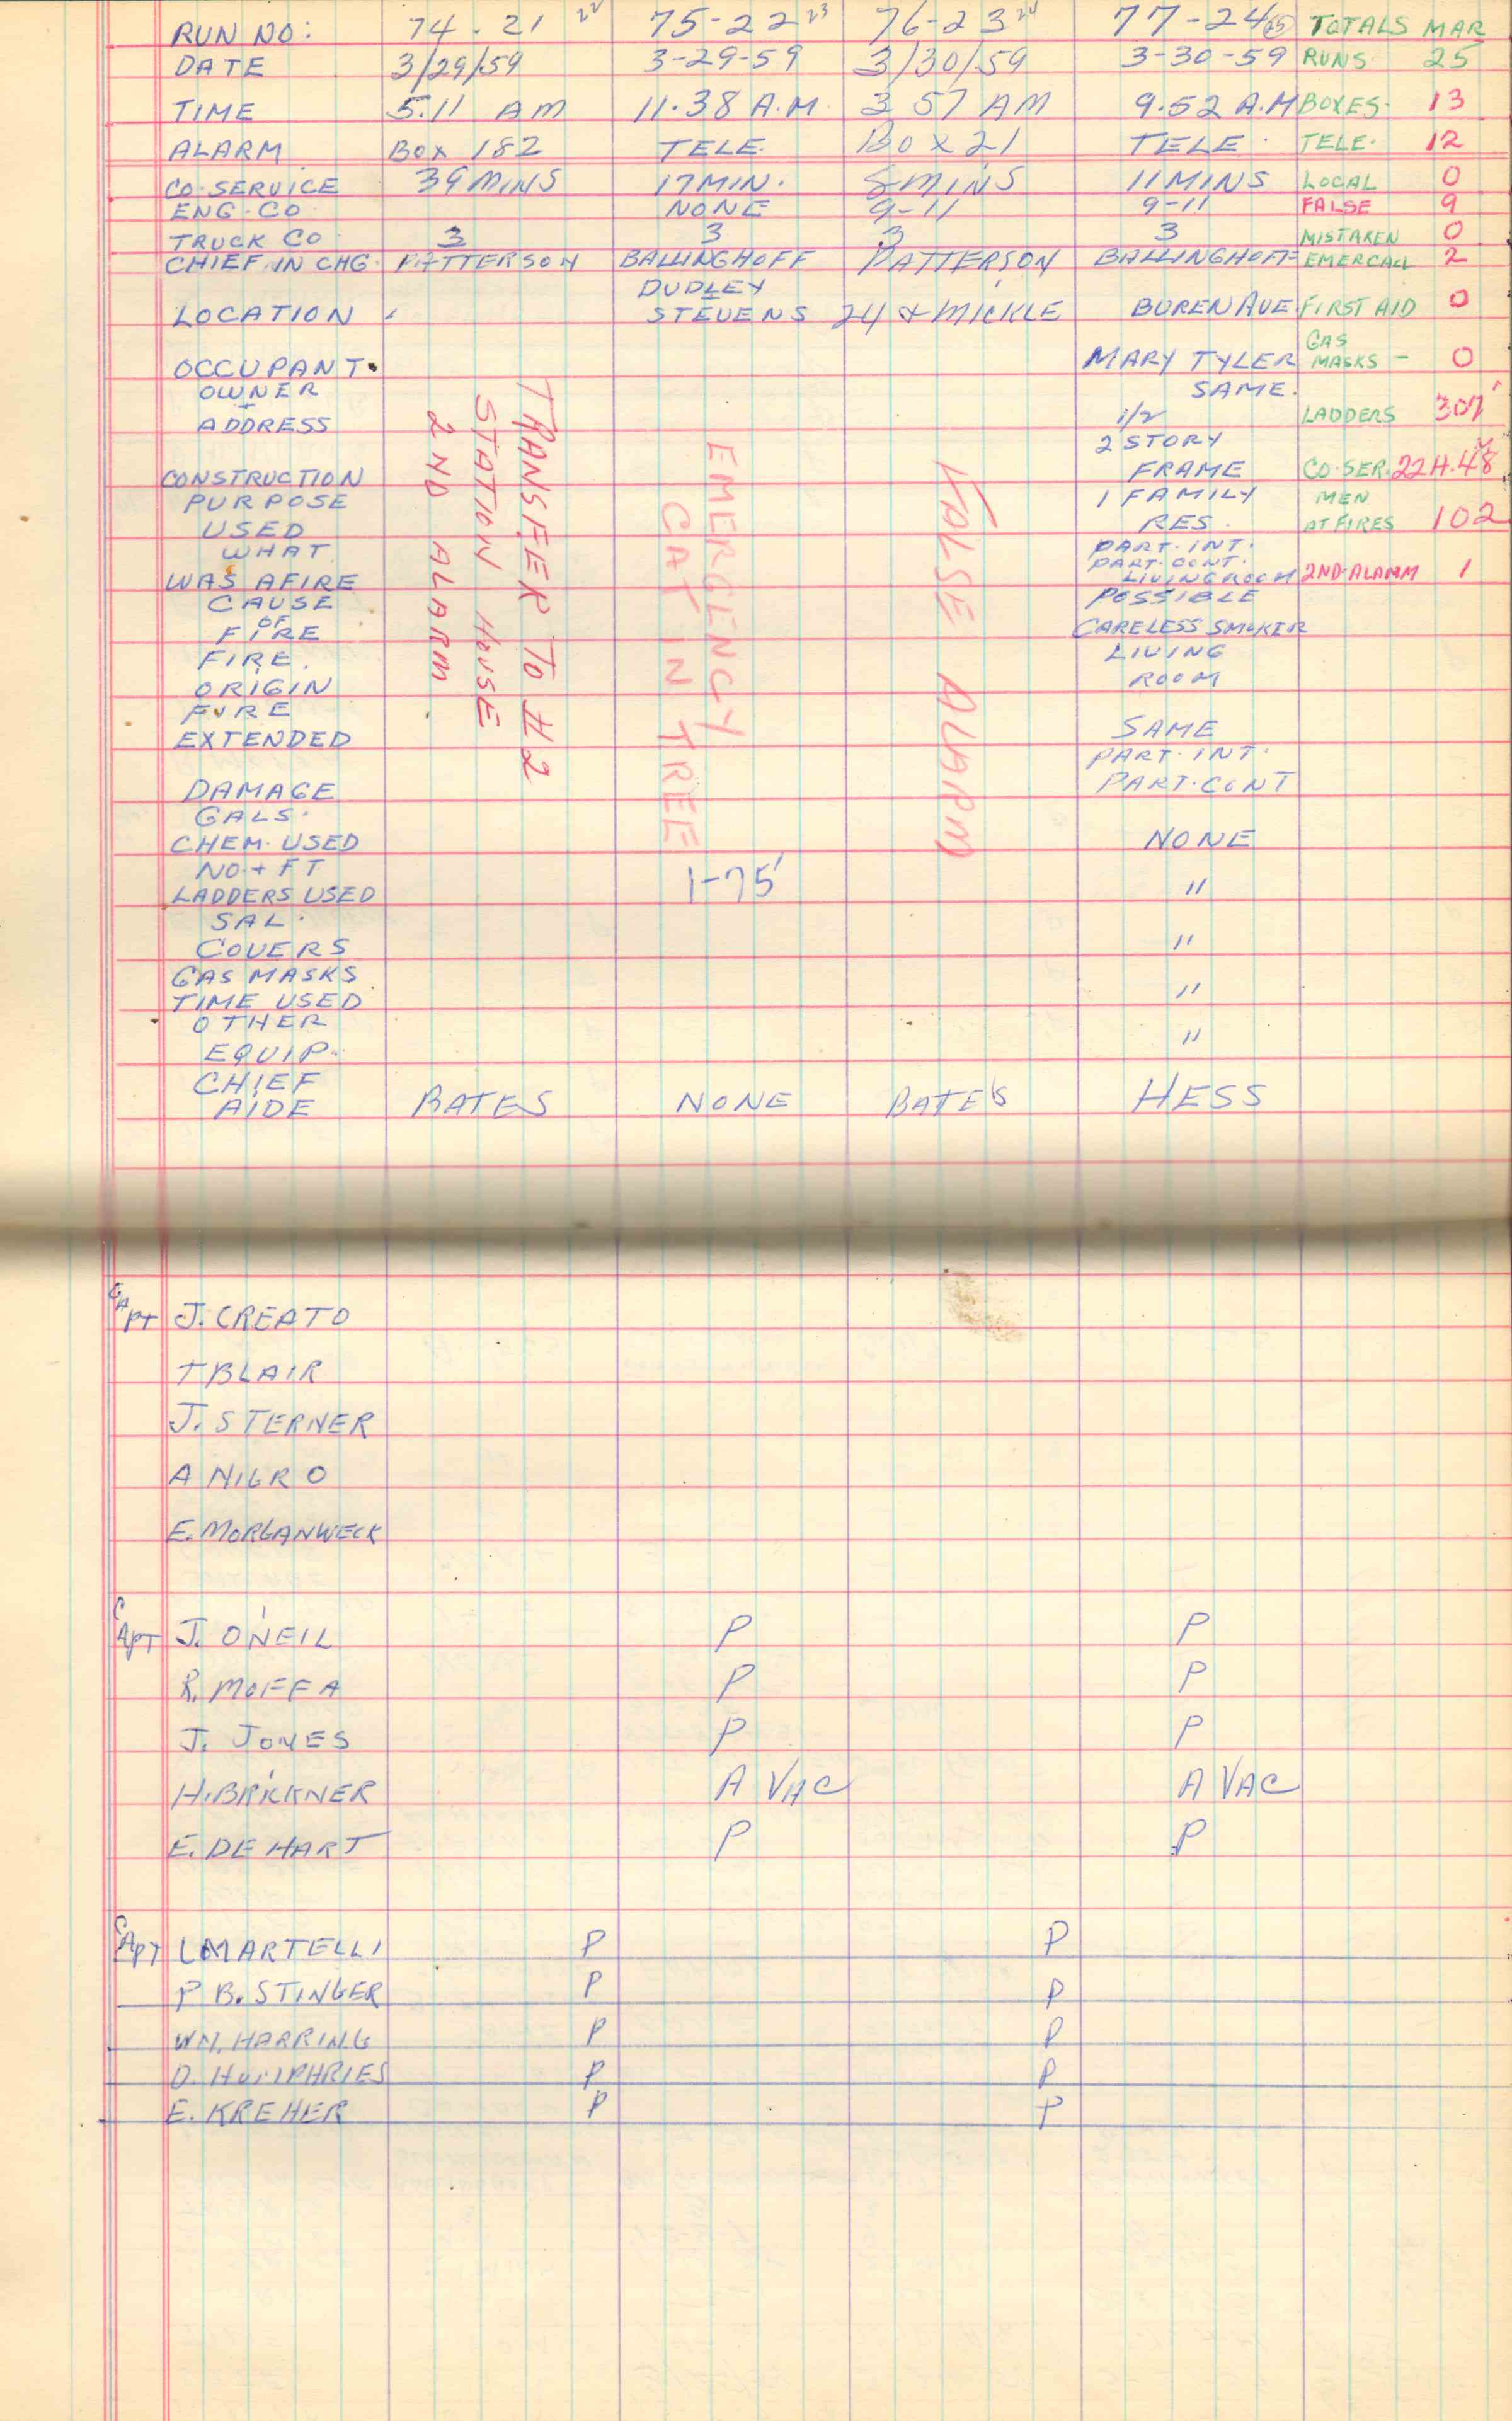 RUN NO: 74-21 22 75-22 23 76-23 24 77-24 25 TOTALS MAR
DATE 3/29/59 3-29-59 3/30/59 3-30-59 RUNS 25
TIME 5.11 AM 11.38 A.M. 3 57 AM 9.52 A.M BOXES- 13
ALARM BOX 182 TELE. BOX 21 TELE. TELE. 12
CO. SERVICE 39 MINS 17 MIN. 8 MINS 11 MINS LOCAL 0
ENG. CO NONE 9-11 9-11 FALSE 9
TRUCK CO 3 3 3 3 MISTAKEN 0
CHIEF IN CHG. PATTERSON BALLINGHOFF PATTERSON BALLINGHOFF EMERCALL 2
DUDLEY
LOCATION STEVENS 24 & MICKLE BOREN AVE FIRST AID 0
GAS
OCCUPANT. MARY TYLER MASKS - 0
OWNER SAME.
ADDRESS 1/2 LADDERS 307'
2 STORY
CONSTRUCTION FRAME CO. SER. 22H.48
PURPOSE 1 FAMILY MEN
USED RES. AT FIRES 102
WHAT PART. INT.
PART. CONT.
WAS AFIRE LIVINGROOM 2ND-ALARM 1
CAUSE POSSIBLE
OF
FIRE CARELESS SMOKER
FIRE. LIVING
ORIGIN ROOM
FIRE
EXTENDED SAME
PART. INT.
DAMAGE PART. CONT
GALS.
CHEM. USED NONE
NO. + FT
LADDERS USED 1-75' "
SAL.
COVERS "
GAS MASKS
TIME USED "
OTHER
EQUIP. "
CHIEF
AIDE BATES NONE BATES HESS
TRANSFER TO #2
STATION HOUSE
2ND ALARM
EMERGENCY
CAT IN TREE
FALSE ALARM
CAPT J. CREATO
T BLAIR
J. STERNER
A NIGRO
E. MORGANWECK
CAPT J. O'NEIL P P
R. MOFFA P P
J. JONES P P
H. BRICKNER A VAC A VAC
E. DE HART P P
CAPT L MARTELLI P P
P B. STINGER P P
WM. HARRING P P
D. HUMPHRIES P P
E. KREHER P P